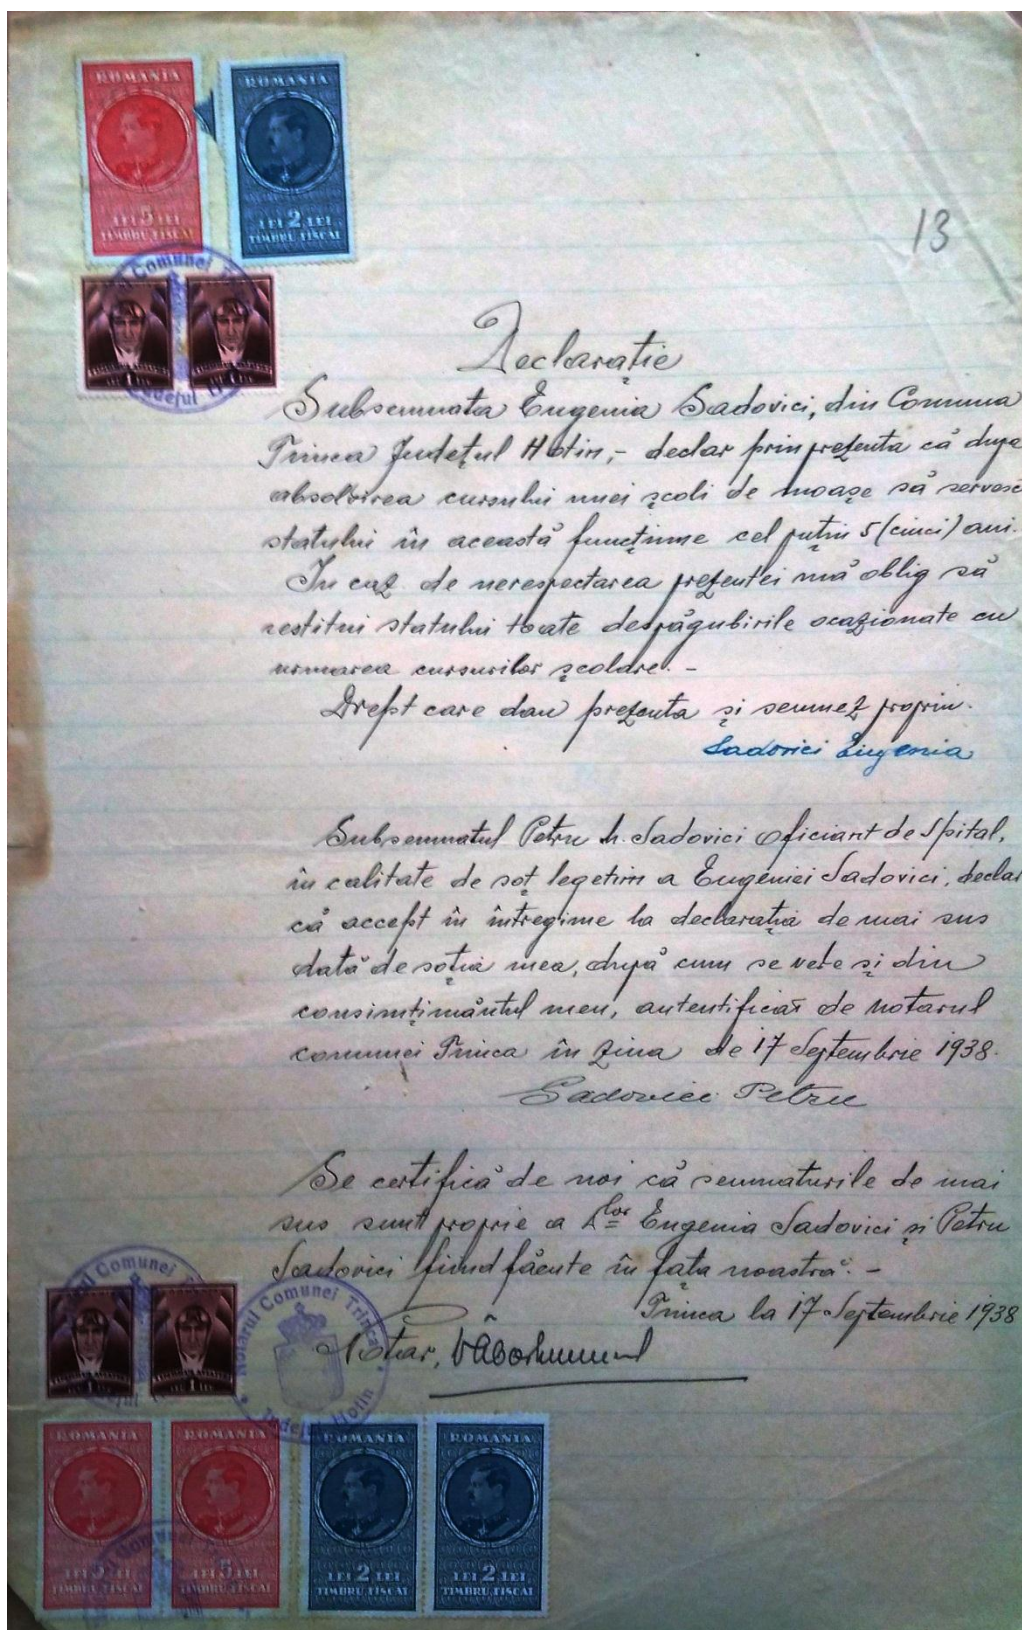 ROMANIA
LEI 5 LEI
TIMBRU FISCAL
ROMANIA
LEI 2 LEI
TIMBRU FISCAL
13
Comunei
Județul
Declarație
Subsemnata Eugenia Sadovici, din Comuna
Trinca Județul Hotin,- declar prin prezenta că dupa
absolvirea cursului unei școli de moașe să servesc
statului în această funcțiune cel puțin 5 (cinci) ani.
In caz de nerespectarea prezentei mă oblig să
restitui statului toate despăgubirile ocazionate cu
urmarea cursurilor școlare. -
Drept care dau prezenta și semnez propriu.
Sadovici Eugenia
Subsemnatul Petru h. Sadovici Oficiant de Spital,
în calitate de soț legetim a Eugeniei Sadovici, declar
că accept în întregime la declarația de mai sus
dată de soția mea, după cum se vete și din
consimțimântul meu, autentificat de notarul
comunei Trinca în ziua de 17 Septembrie 1938.
Sadovici Petru
Se certifică de noi că semnaturile de mai
sus sunt proprie a D lor Eugenia Sadovici și Petru
Sadovici fiind făcute în fața noastră. -
Trinca la 17 Septembrie 1938
Notar,
Notarul Comunei Trinca
Județul Hotin
ROMANIA
LEI 5 LEI
TIMBRU FISCAL
ROMANIA
LEI 5 LEI
TIMBRU FISCAL
ROMANIA
LEI 2 LEI
TIMBRU FISCAL
ROMANIA
LEI 2 LEI
TIMBRU FISCAL